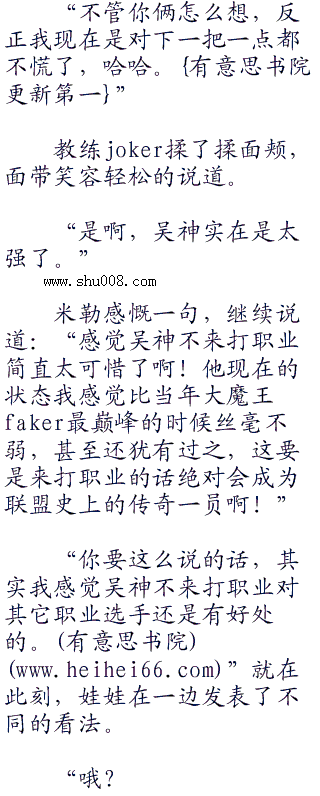 “不管你俩怎么想，反
正我现在是对下一把一点都
不慌了，哈哈。{有意思书院
更新第一}”
教练joker揉了揉面颊，
面带笑容轻松的说道。
“是啊，吴神实在是太
强了。”
www.shu008.com
米勒感慨一句，继续说
道：“感觉吴神不来打职业
简直太可惜了啊！他现在的
状态我感觉比当年大魔王
faker最巅峰的时候丝毫不
弱，甚至还犹有过之，这要
是来打职业的话绝对会成为
联盟史上的传奇一员啊！”
“你要这么说的话，其
实我感觉吴神不来打职业对
其它职业选手还是有好处
的。(有意思书院)
(www.heihei66.com)”就在
此刻，娃娃在一边发表了不
同的看法。
“哦？